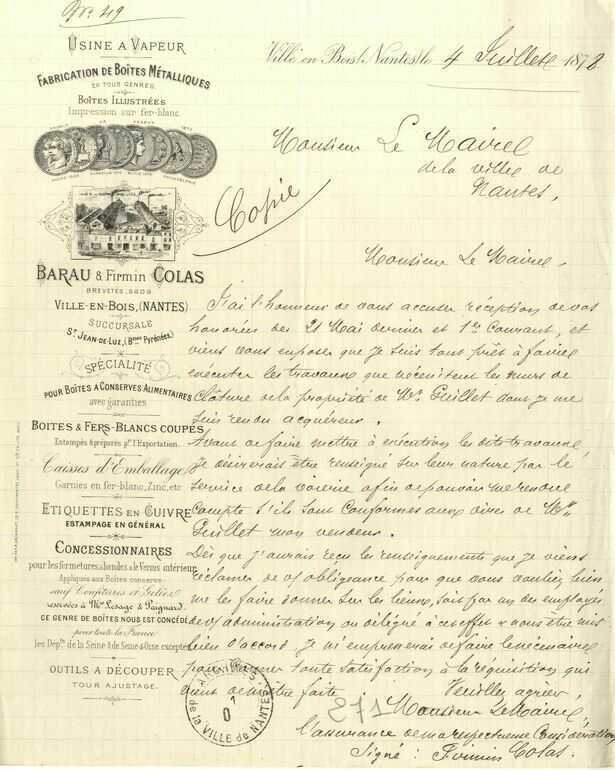 No. 49
USINE A VAPEUR
FABRICATION DE BOÎTES MÉTALLIQUES
EN TOUS GENRES
BOÎTES ILLUSTRÉES
Impression sur fer-blanc
BARAU & Firmin COLAS
BREVETÉS, S.G.D.G.
VILLE-EN-BOIS, (NANTES)
SUCCURSALE
ST JEAN-DE-LUZ, (Bses Pyrénées)
SPÉCIALITÉ
POUR BOÎTES A CONSERVES ALIMENTAIRES
avec garanties
BOITES & FERS-BLANCS COUPÉS
Estampés & préparés pr l'Exportation.
Caisses d'Emballage
Garnies en fer-blanc, Zinc, etc
ETIQUETTES EN CUIVRE
ESTAMPAGE EN GÉNÉRAL
CONCESSIONNAIRES
pour les fermetures à bandes & de Vernis intérieur
Appliqués aux Boîtes conserve
sauf Confitures & Gelées
réservées à Mrs Lesage & Paignard
CE GENRE DE BOÎTES NOUS EST CONCÉDÉ
pour toute la France
les Depts de la Seine & de Seine & Oise exceptés
OUTILS A DÉCOUPER
TOUR AJUSTAGE.
Ville en Bois, Nantes, le 4 Juillet 1878
Monsieur Le Maire
de la ville de
Nantes,
Copie
Monsieur Le Maire,
J'ai l'honneur de vous accuser réception de vos
honorées des 21 Mai dernier et 1er Courant, et
viens vous exposer que je suis tout prêt à faire
exécuter les travaux que nécessitent les murs de
Clôture de la propriété de Mr Guillet dont je me
suis rendu acquéreur.
Avant de faire mettre à exécution les dits travaux,
je désirerais être renseigné sur leur nature par le
service de la voierie afin de pouvoir me rendre
compte s'ils sont conformes aux dires de Mr
Guillet mon vendeur.
Dès que j'aurais reçu les renseignements que je viens
réclamer de v/ obligeance pour que vous vouliez bien
me les faire donner sur les lieux, soit par un des employés
de v/ administration ou délégué à cet effet & nous être mis
bien d'accord, je m'empresserai de faire le nécessaire
pour donner toute satisfaction à la réquisition qui
vient de m'être faite.
Veuillez agréer,
Monsieur Le Maire,
l'assurance de ma respectueuse Considération
Signé : Firmin Colas.
ARCHIVES
de la VILLE de NANTES
271